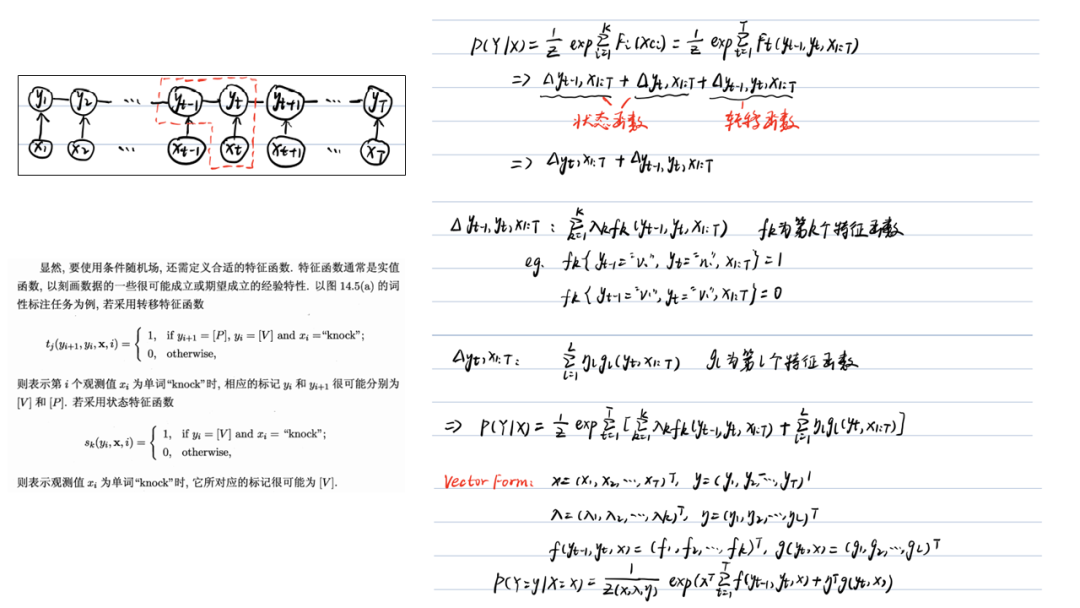 y₁ y₂ ... yt-1 yt yt+1 ... yT
x₁ x₂ ... xt-1 xt xt+1 ... xT
显然, 要使用条件随机场, 还需定义合适的特征函数. 特征函数通常是实值
函数, 以刻画数据的一些很可能成立或期望成立的经验特性. 以图 14.5(a) 的词
性标注任务为例, 若采用转移特征函数
tj(yi+1, yi, x, i) = { 1, if yi+1 = [P], yi = [V] and xi = “knock”;
0, otherwise,
则表示第 i 个观测值 xi 为单词“knock”时, 相应的标记 yi 和 yi+1 很可能分别为
[V] 和 [P]. 若采用状态特征函数
sk(yi, x, i) = { 1, if yi = [V] and xi = “knock”;
0, otherwise,
则表示观测值 xi 为单词“knock”时, 它所对应的标记很可能为 [V].
P(Y|X) = 1/Z exp Σ_{i=1}^{K} Fi(xci) = 1/Z exp Σ_{t=1}^{T} Ft(yt-1, yt, x1:T)
=> Δyt-1, x1:T + Δyt, x1:T + Δyt-1, yt, x1:T
状态函数 转移函数
=> Δyt, x1:T + Δyt-1, yt, x1:T
Δyt-1, yt, x1:T : Σ_{k=1}^{K} λk fk(yt-1, yt, x1:T) fk为第k个特征函数
eg. fk{yt-1="v.", yt="n.", x1:T}=1
fk{yt-1="v.", yt="v.", x1:T}=0
Δyt, x1:T : Σ_{l=1}^{L} ηl gl(yt, x1:T) gl为第l个特征函数
=> P(Y|X) = 1/Z exp Σ_{t=1}^{T} [Σ_{k=1}^{K} λk fk(yt-1, yt, x1:T) + Σ_{l=1}^{L} ηl gl(yt, x1:T)]
Vector Form: x=(x₁, x₂, ..., xT)ᵀ, y=(y₁, y₂, ..., yT)ᵀ
λ=(λ₁, λ₂, ..., λk)ᵀ, η=(η₁, η₂, ..., ηL)ᵀ
f(yt-1, yt, x) = (f₁, f₂, ..., fk)ᵀ, g(yt, x) = (g₁, g₂, ..., gL)ᵀ
P(Y=y|X=x) = 1/Z(x,λ,η) exp(λᵀ Σ_{t=1}^{T} f(yt-1, yt, x) + ηᵀg(yt, x))